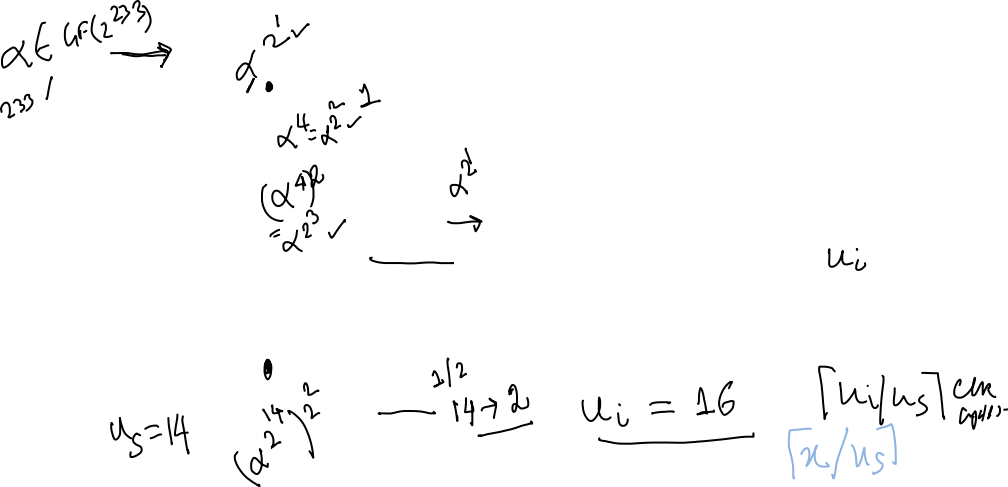 α ∈ GF(2^233) → α^2^1 ✓
233 /
α^4 = α^2^2 ✓ 1
(α^4)^2
= α^2^3 ✓
α^2^i →
u_i
u_s = 14
(α^2^14)^2^2
1/2
14 → 2
u_i = 16
⌈u_i/u_s⌉
⌈x/u_s⌉